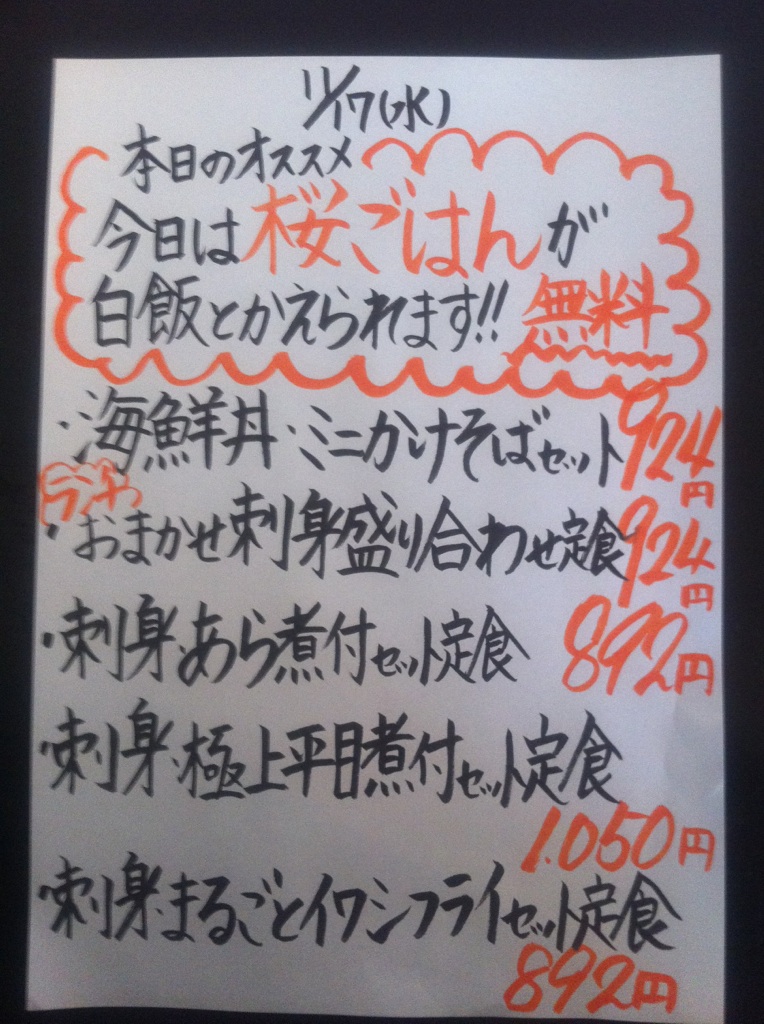 11/17(水)
本日のオススメ
今日は桜ごはんが
白飯とかえられます!! 無料
・海鮮丼・ミニかけそばセット 924円
ランチ
・おまかせ刺身盛り合わせ定食 924円
・刺身・あら煮付セット定食 892円
・刺身・極上平目煮付セット定食
1.050円
・刺身・まるごとイワシフライセット定食
892円